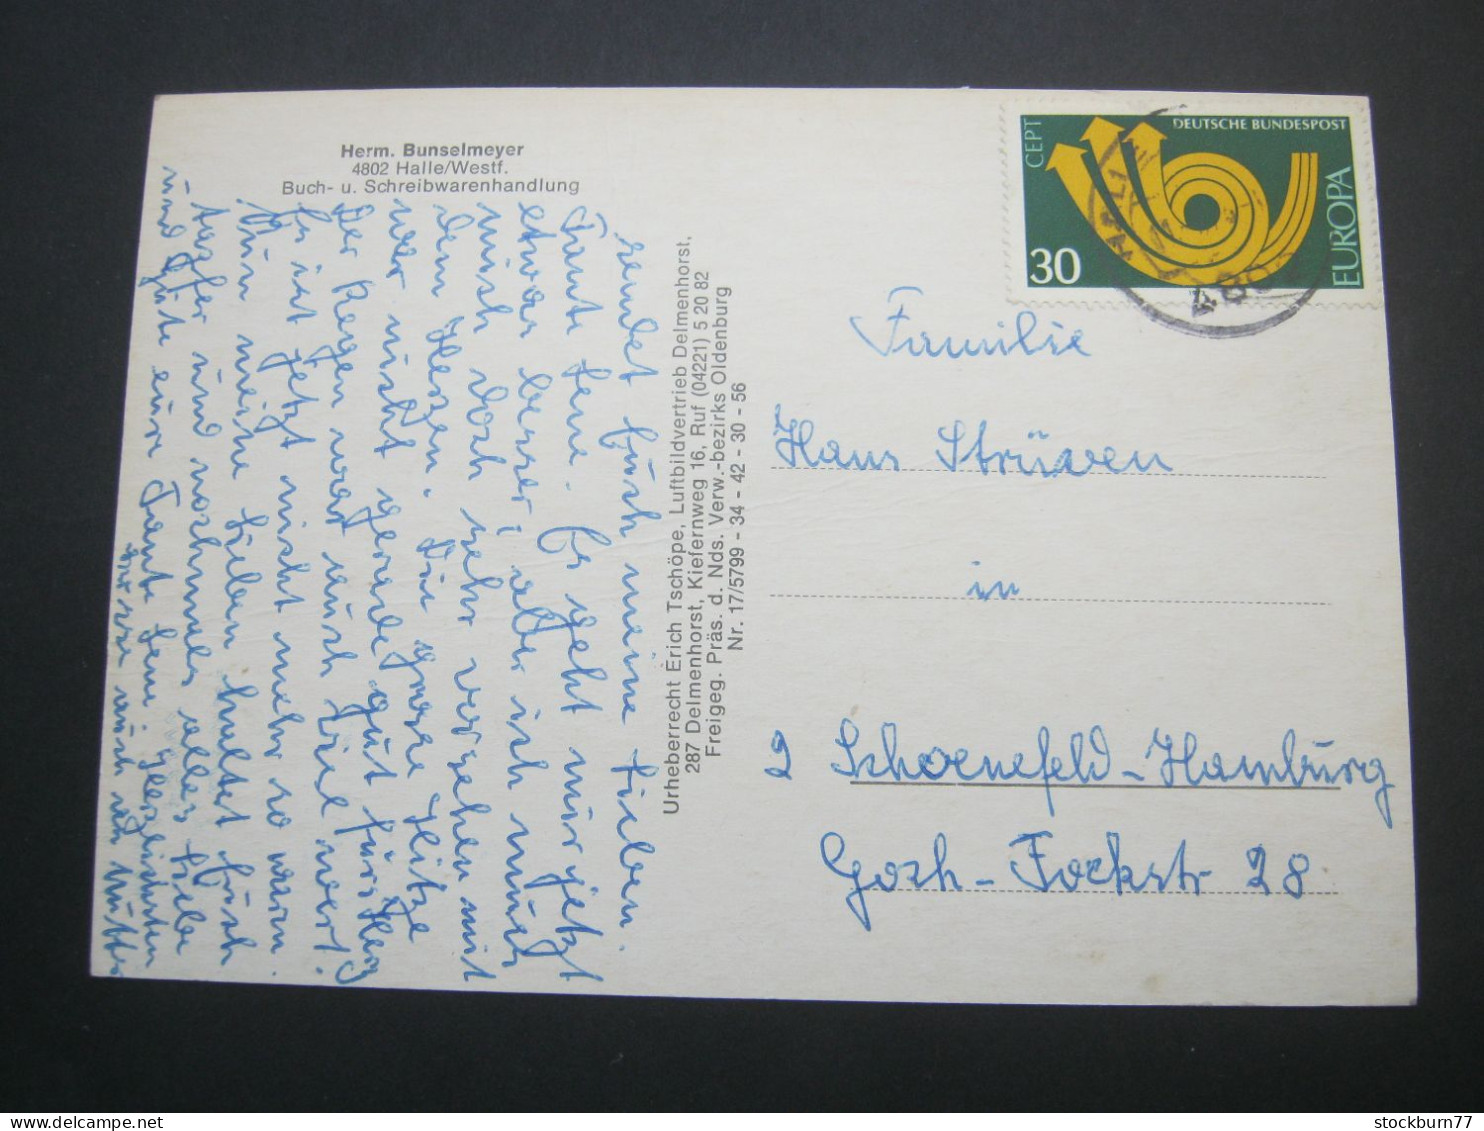 Herm. Bunselmeyer
4802 Halle/Westf.
Buch- u. Schreibwarenhandlung
CEPT
DEUTSCHE BUNDESPOST
EUROPA
30
480
Urheberrecht Erich Tschöpe, Luftbildvertrieb Delmenhorst,
287 Delmenhorst, Kiefernweg 16, Ruf (04221) 5 20 82
Freigeg. Präs. d. Nds. Verw.-bezirks Oldenburg
Nr. 17/5799 - 34 - 42 - 30 - 56
Familie
Hans Strüven
in
2 Schoenefeld-Hamburg
Goch-Fockstr 28
sendet Euch meine Lieben
Tante Leni. Es geht mir jetzt
etwas besser, aber ich muss
mich doch sehr vorsehen mit
dem Herzen. Die große Hitze
war nicht gerade gut fürs Herz
Der Regen war auch viel wert.
Es ist jetzt nicht mehr so warm.
Nun meine Lieben haltet Euch
tapfer und nochmals alles Liebe
und Gute eure Tante Leni. Herzlichsten
auch an Mutter
stockburn77
Delcampe.net